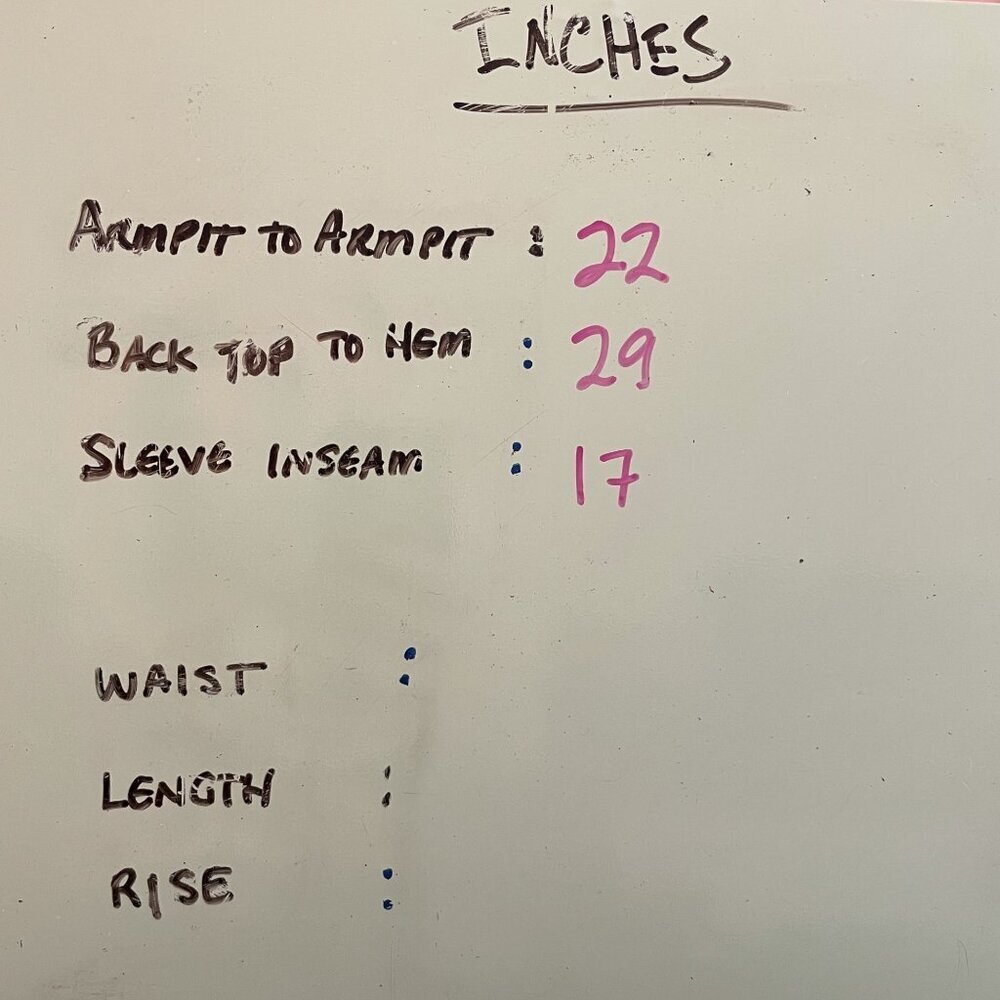 INCHES
ARMPIT TO ARMPIT : 22
BACK TOP TO HEM : 29
SLEEVE INSEAM : 17
WAIST :
LENGTH :
RISE :